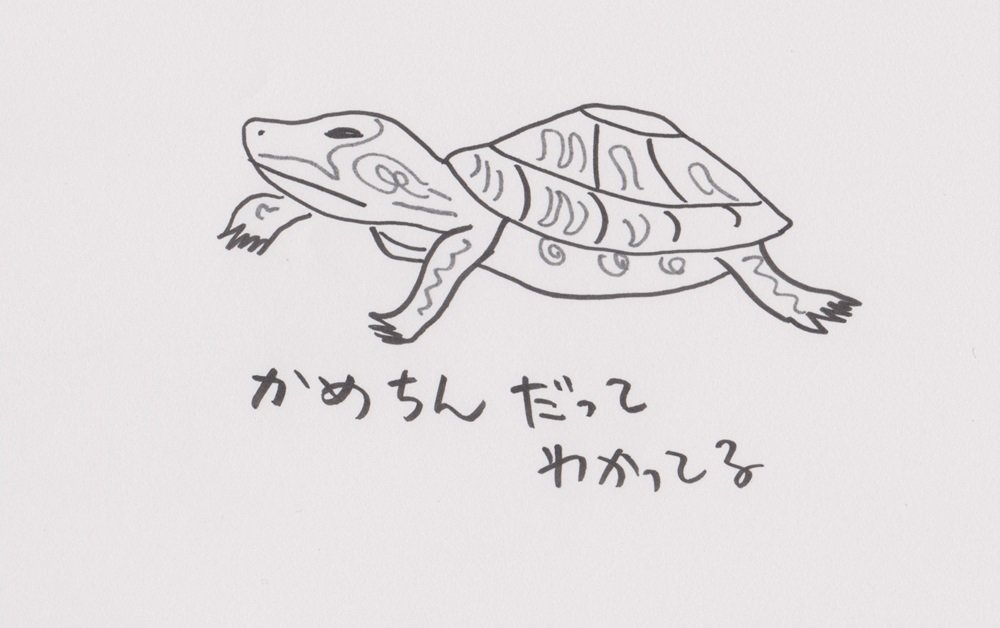 かめちんだって
わかってる